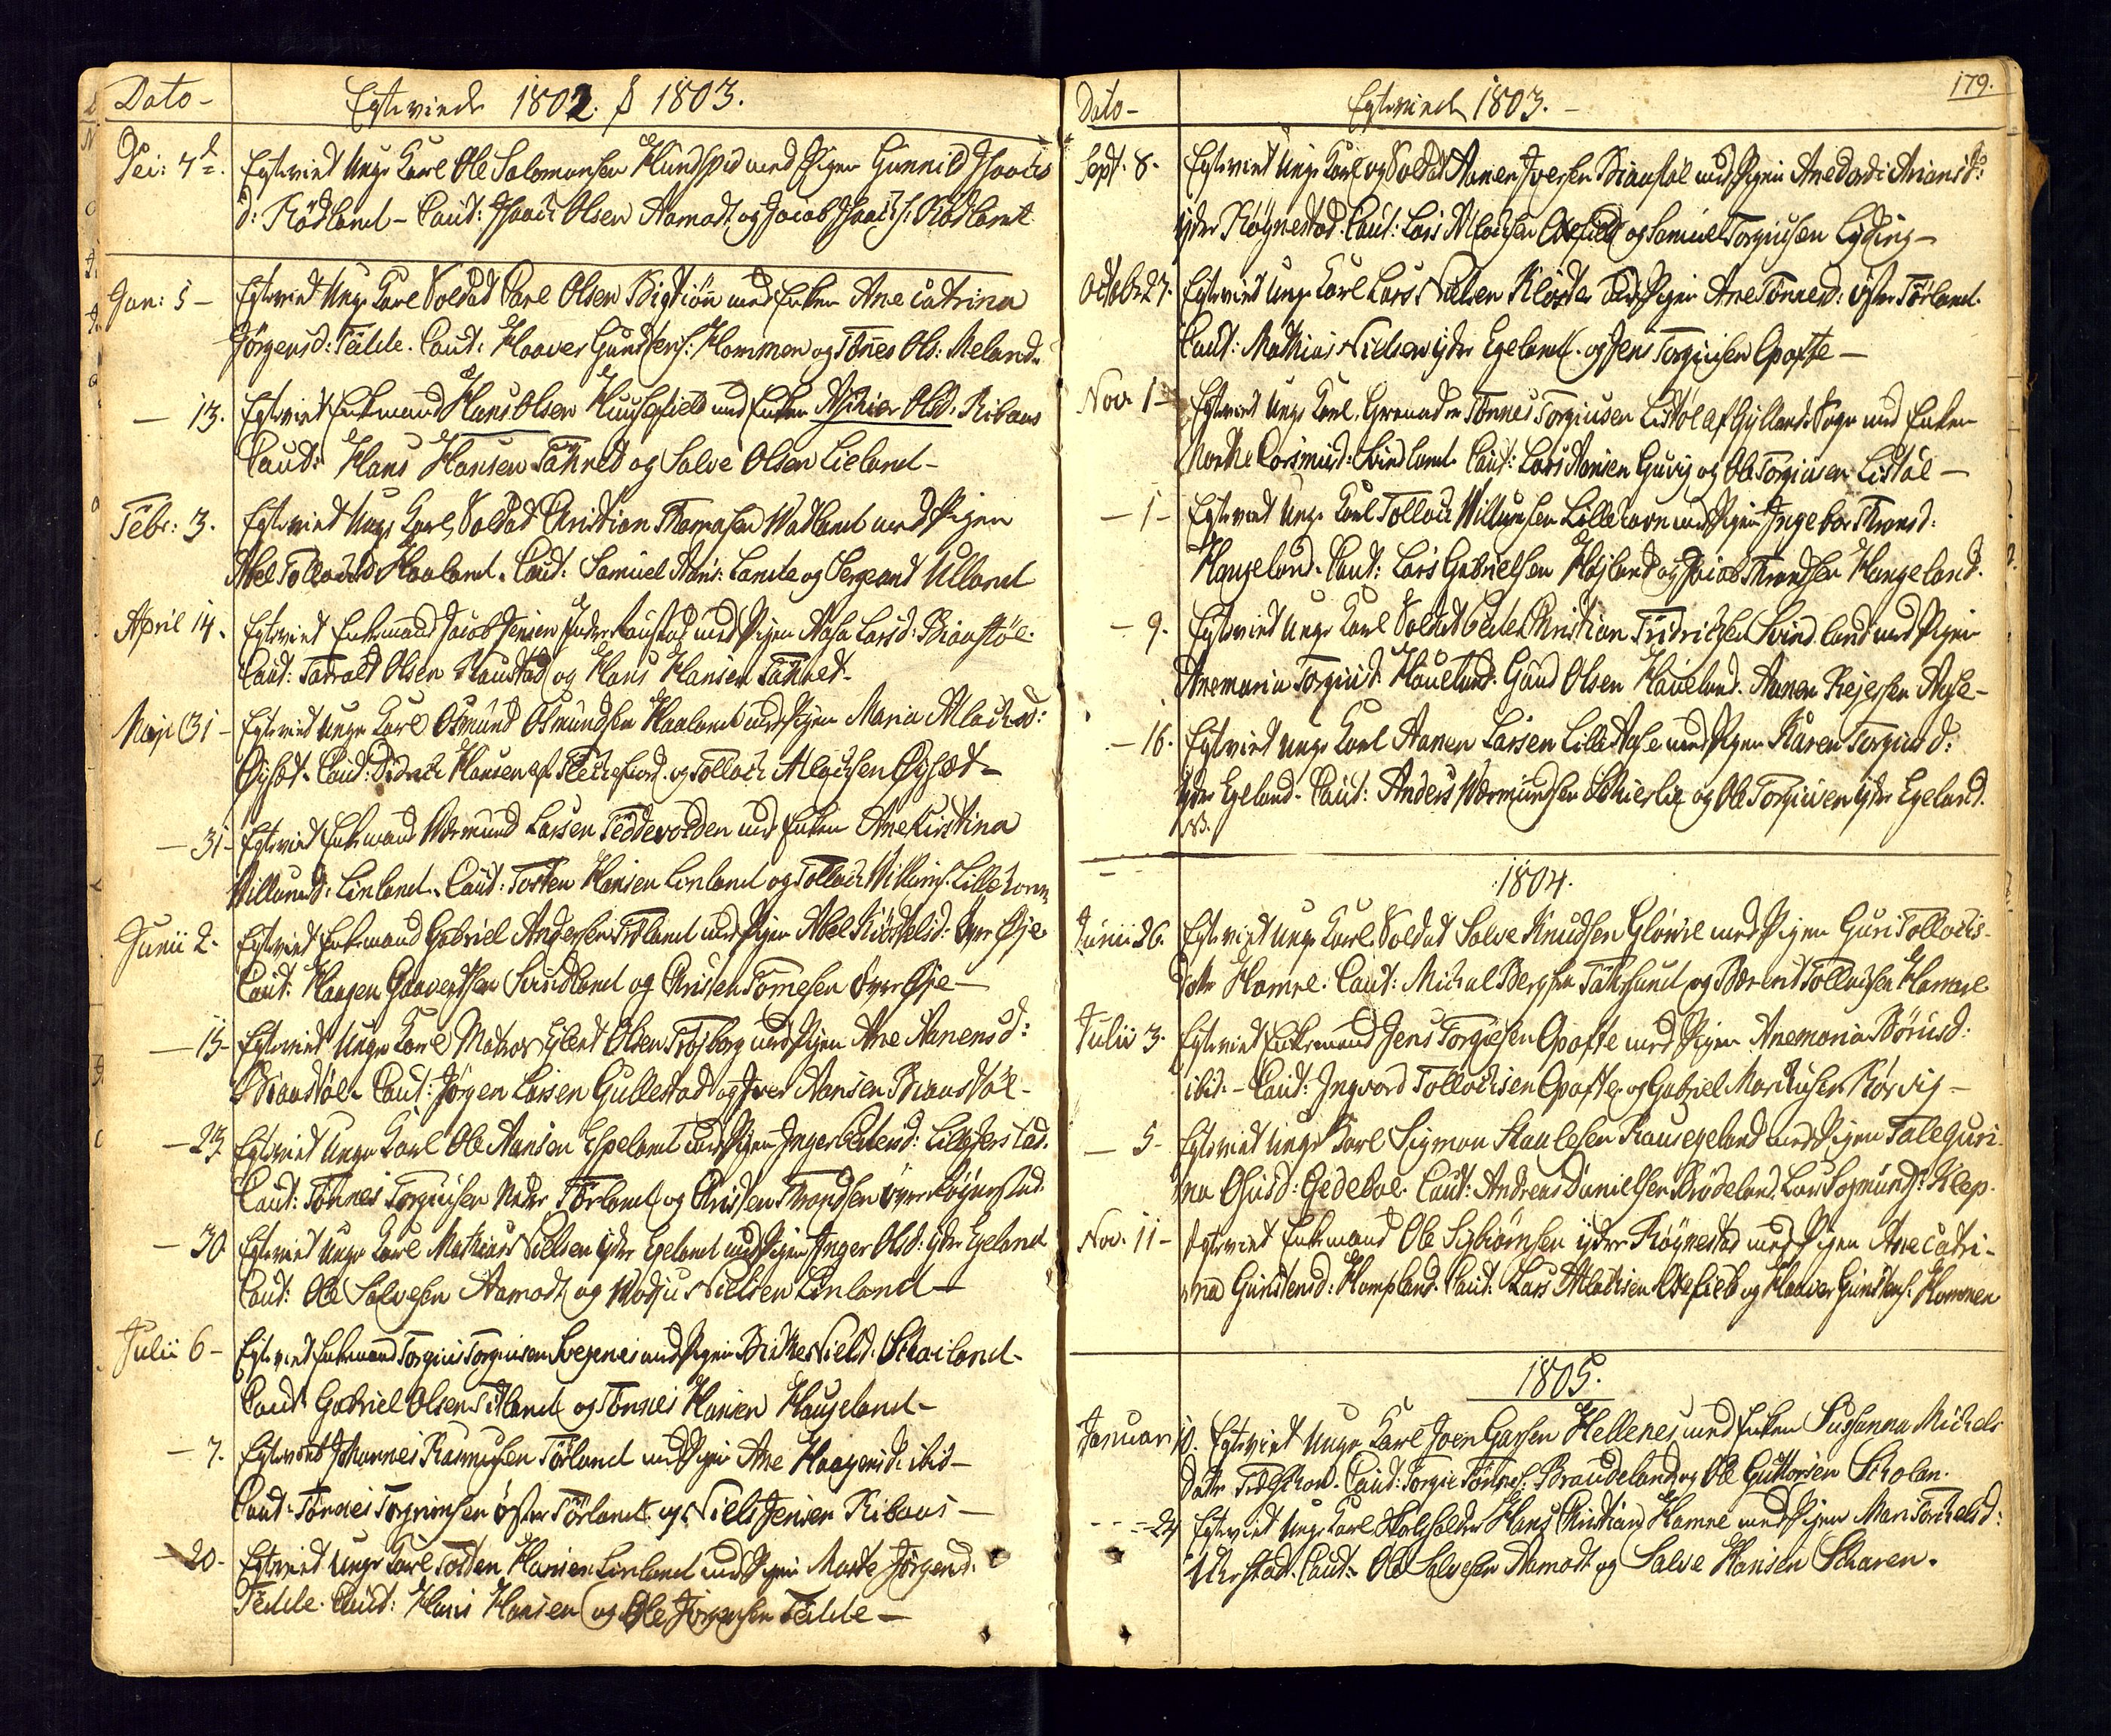 Dato-
Egteviede 1802. & 1803.
Egteviet Unge Karl Ole Salomonsen Hundspid med Pigen Gunnild Isaacs
d: Rødland - Caut: Isaach Olsen Aamodt og Jacob Isaachs: Rødland
Jan: 5 - Egteviet Unge Karl Soldat Carl Olsen Bigtiøn med Enken Ane Catrina
Jørgensd: Fedde. Caut: Haaver Gundsens: Hommen og Tønes Ols: Meland
- 13. Egteviet Enkemand Hans Olsen Huusefield med Enken Olsd: Ribaas
Caut: Hans Hansen og Salve Olsen Lieland -
Febr: 3. Egteviet Unge Karl, Soldat Christian Thomasen Wadland med Pigen
Abel Tollachsd: Haaland. Caut: Samuel Hans: Lande og Sergeant Ulland
April 14. Egteviet Enkemand Jacob Jensen Indre Raustad med Pigen Aasa Larsd: Biaastøl.
Caut: Tarrald Olsen Raustad og Hans Hansen
Maji 31 - Egteviet Unge Karl Osmund Osmundsen Haaland med Pigen Maria Atlachsd:
Øysæt. Caut: Didrich Hansen af Flechefiord og Tollach Atlachsen Øysæt -
- 31 - Egteviet Enkemand Wermund Larsen Feddevolden med Enken Ane Kirstina
Villumsd: Linland. Caut: Tosten Hansen Linland og Tollach Villums: Lillehom
Junii 2. Egteviet Enkemand Gabriel Andersen Tidland med Pigen Abel Kiøstelsd: Øvre Øje
Caut: Haagen Gaavertsen Sundland og Christen Tomesen Øvre Øje -
- 15 - Egteviet Unge Karl Matros Eilert Olsen med Pigen Ane Aanensd:
Biaastøl. Caut: Jørgen Larsen Gullestad og Iver Aansen Biaastøl -
- 23. Egteviet Unge Karl Ole Aansen Espeland med Pigen Inger
Caut: Tønnes Torgiusen Nedre Førland og Christen Throndsen Øvre Røgnestad
- 30 Egteviet Unge Karl Mathias Nielsen Ydre Egeland med Pigen Inger Olsd: Ydre Egeland
Caut: Ole Salvesen Aamodt og Nielsen Linland -
Julii 6 - Egteviet Enkemand Torgius Torgiusen Svegenes med Pigen Birthe Nielsd: Schailand -
Caut: Gabriel Olsen Tidland og Tønnes Hansen Haugeland -
- 7. Egteviet Johannes Rasmusen Førland med Pigen Ane Haagensd: ibid -
Caut: Tønnes Torgrimsen Øster Førland og Niels Jensen Ribaas -
- 20 - Egteviet Unge Karl Tosten Hansen Linland med Pigen Marte Jørgensd:
Fedde. Caut: Hans Hansen og Ole Jørgensen Fedde -
179.
Dato -
Egteviede 1803. -
Sept: 8. Egteviet Unge Karl og Soldat Aanen Iversen Biaastøl med Pigen
Ydre Røgnestad. Caut: Lars Atlachsen Oxefield og Samuel Torgiusen Lyding -
Octobr 27. Egteviet Unge Karl Lars Nielsen Kloster med Pigen Ane Tønnesd: Øster Førland.
Caut: Mathias Nielsen Ydre Egeland. og Jens Torgiusen Opofte -
Nov. 1 - Egteviet Unge Karl, Grenader Tønnes Torgiusen Listøl af Gyllands Sogn med Enken
Marthe Svindland. Caut: Lars Hansen og Ole Torgiusen Listøl -
- 1 - Egteviet Unge Karl Tollach Willumsen Lillehom med Pigen Ingebor Thronsd:
Haugeland. Caut: Lars Gabrielsen Højland og Jacob Throndsen Haugeland.
- 9. Egteviet Unge Karl Soldat Christian Fridrichsen Svindland med Pigen
Anemaria Torgiusd: Haueland. Gaud Olsen Haueland. Aanen Rejersen Aase -
- 16. Egteviet Unge Karl Aanen Larsen Lille Aase med Pigen Karen Torgiusd:
Ydre Egeland. Caut: Anders Wermundsen Schierlie og Ole Torgiusen Ydre Egeland.
NB.
1804.
Junii 26. Egteviet Unge Karl Soldat Salve Knudsen med Pigen Guri Tollachs-
datter Hamre. Caut: Michal Bergsen og Berent Tollachsen Hamre
Julii 3. Egteviet Enkemand Jens Torgiusen Opofte med Pigen Anemaria Børusd:
ibid. - Caut: Ingvord Tollachsen Opofte og Gabriel Marchusen Rørvig -
- 5 - Egteviet Unge Karl Sigmon Staalesen Rausegeland med Pigen Taleguri-
na Osusd: Gedeboe. Caut: Andreas Danielsen Brødeland. Lars Klep.
Nov. 11 - Egteviet Enkemand Ole Sigbiørnsen Ydre Røgnestad med Pigen Ane Catri-
na Gunstensd: Hompland. Caut: Lars Atlachsen Oxefield og Haaver Gunstens: Hommen
1805.
Januar 10. Egteviet Unge Karl Joen Garsen Hellenes med Enken Susanna Michels
datter Caut: Torgie Tønnes: Braudeland og Ole Guttorsen Scholan.
- 24 Egteviet Unge Karl Skoleholder Hans Christian Hamre med Pigen Mari
Urstad. Caut: Ole Salvesen Aamodt og Salve Hansen Scharen.